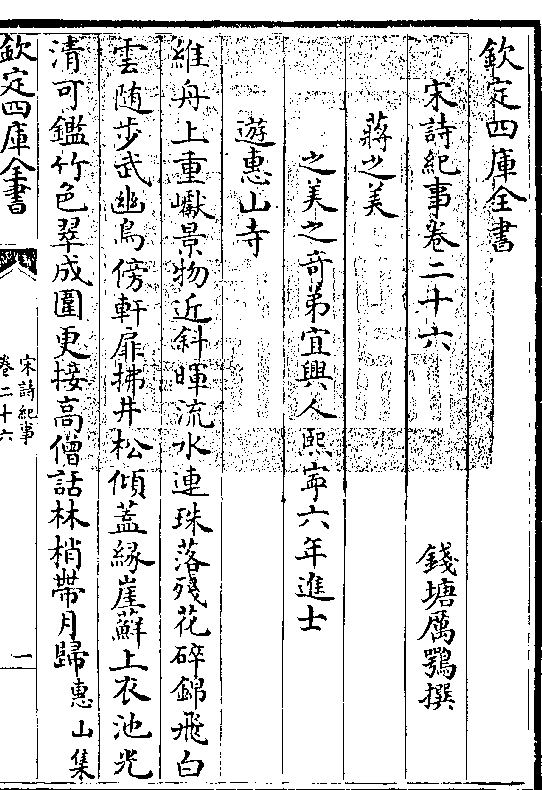 欽定四庫全書
宋詩紀事卷二十六
錢塘厲鶚撰
蔣之美
之美之奇弟宜興人熙寧六年進士
遊惠山寺
維舟上重巘景物近斜暉流水連珠落殘花碎錦飛白
雲隨步武幽鳥傍軒扉拂井松傾蓋緣崖蘚上衣池光
清可鑑竹色翠成圍更接高僧話林梢帶月歸惠山集
欽定四庫全書
宋詩紀事
卷二十六
一